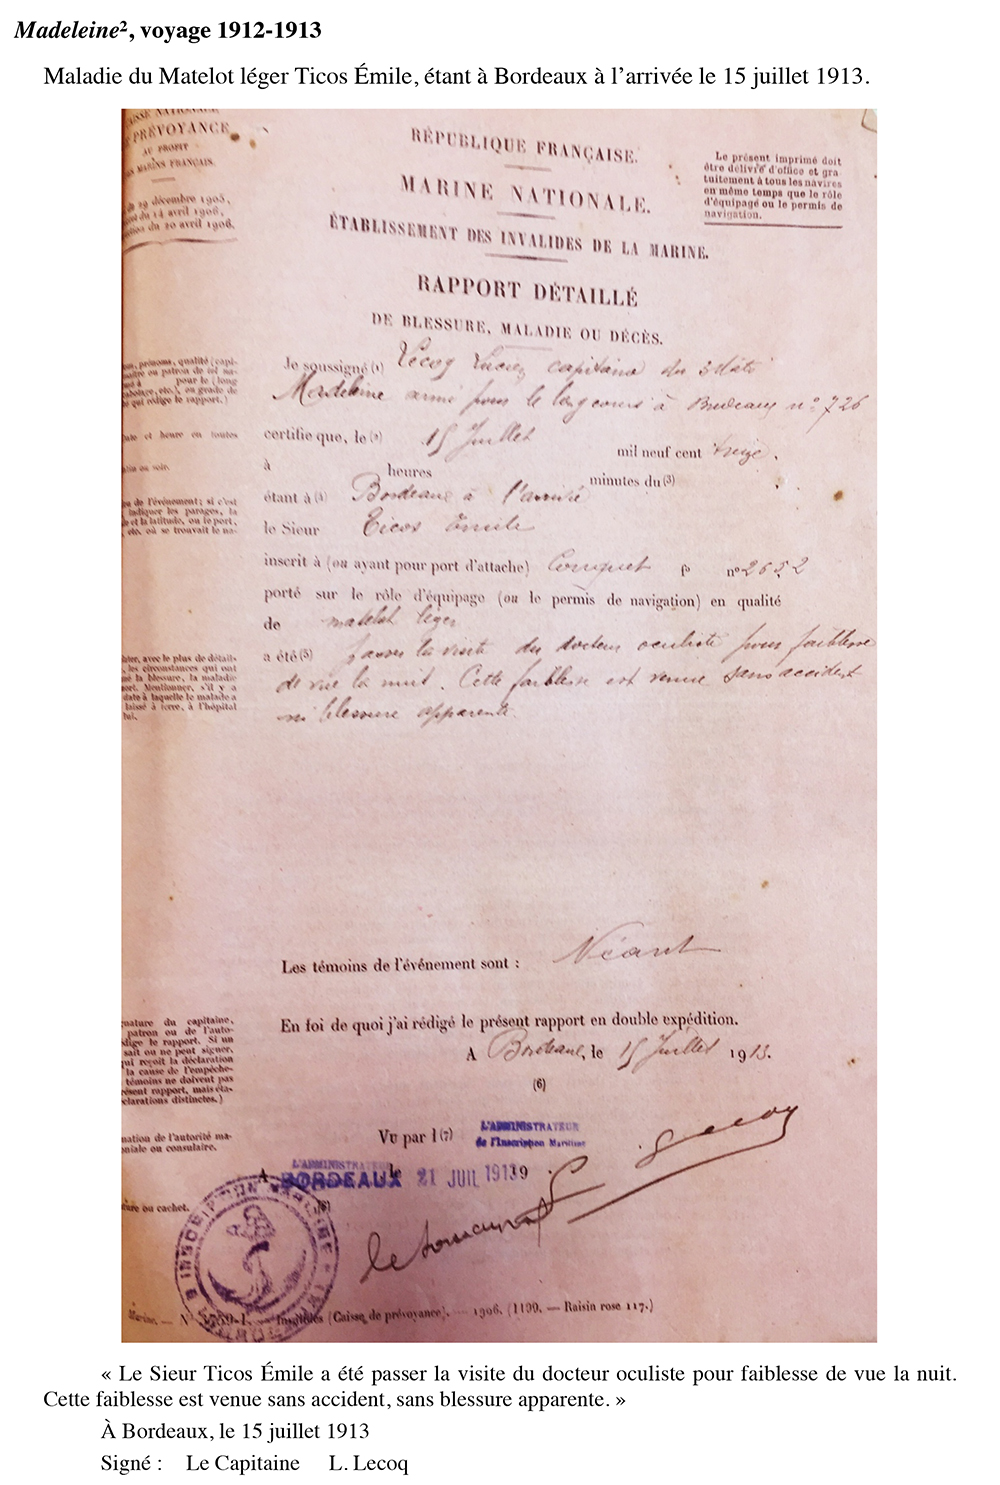 Madeleine², voyage 1912-1913
Maladie du Matelot léger Ticos Émile, étant à Bordeaux à l’arrivée le 15 juillet 1913.
CAISSE NATIONALE
PRÉVOYANCE
AU PROFIT
MARINS FRANÇAIS.
29 décembre 1905,
du 14 avril 1906,
du 20 avril 1906.
RÉPUBLIQUE FRANÇAISE.
MARINE NATIONALE.
ÉTABLISSEMENT DES INVALIDES DE LA MARINE.
Le présent imprimé doit
être délivré d'office et gra-
tuitement à tous les navires
en même temps que le rôle
d'équipage ou le permis de
navigation.
RAPPORT DÉTAILLÉ
DE BLESSURE, MALADIE OU DÉCÈS.
prénoms, qualité (capi-
ou patron de tel na-
à pour le (long
etc.), ou grade de
qui rédige le rapport.)
Je soussigné (1) Lecoq Lucien capitaine du 3 mâts
Madeleine armé pour le long cours à Bordeaux n° 726
et heure en toutes
certifie que, le (2) 15 Juillet mil neuf cent treize.
ou soir.
à heures minutes du (3)
de l'événement; si c'est
indiquer les parages, la
et la latitude, ou le port,
etc. où se trouvait le na-
étant à (3) Bordeaux à l'arrivée
le Sieur Ticos Émile
inscrit à (ou ayant pour port d'attache) Conquet n° 2652
porté sur le rôle d'équipage (ou le permis de navigation) en qualité
de matelot léger
avec le plus de détail-
les circonstances qui ont
la blessure, la maladie
Mentionner, s'il y a
date à laquelle le malade a
laissé à terre, à l'hôpital
a été (5) passer la visite du docteur oculiste pour faiblesse
de vue la nuit. Cette faiblesse est venue sans accident
ni blessure apparente.
Les témoins de l'événement sont : Néant
du capitaine,
patron ou de l'auto-
rédige le rapport. Si un
sait ou ne peut signer,
qui reçoit la déclaration
la cause de l'empêche-
témoins ne doivent pas
présent rapport, mais
déclarations distinctes.)
En foi de quoi j'ai rédigé le présent rapport en double expédition.
A Bordeaux, le 15 Juillet 1913.
(6)
de l'autorité ma-
ou consulaire.
Vu par l (7) L'ADMINISTRATEUR
de l'Inscription Maritime
L'ADMINISTRATEUR
A BORDEAUX le 21 JUIL 1913 9
ou cachet.
(8)
Lecoq
INSCRIPTION MARITIME
Marine. — N° — Invalides (Caisse de prévoyance). — 1906. (1199. — Raisin rose 117.)
« Le Sieur Ticos Émile a été passer la visite du docteur oculiste pour faiblesse de vue la nuit.
Cette faiblesse est venue sans accident, sans blessure apparente. »
À Bordeaux, le 15 juillet 1913
Signé : Le Capitaine L. Lecoq